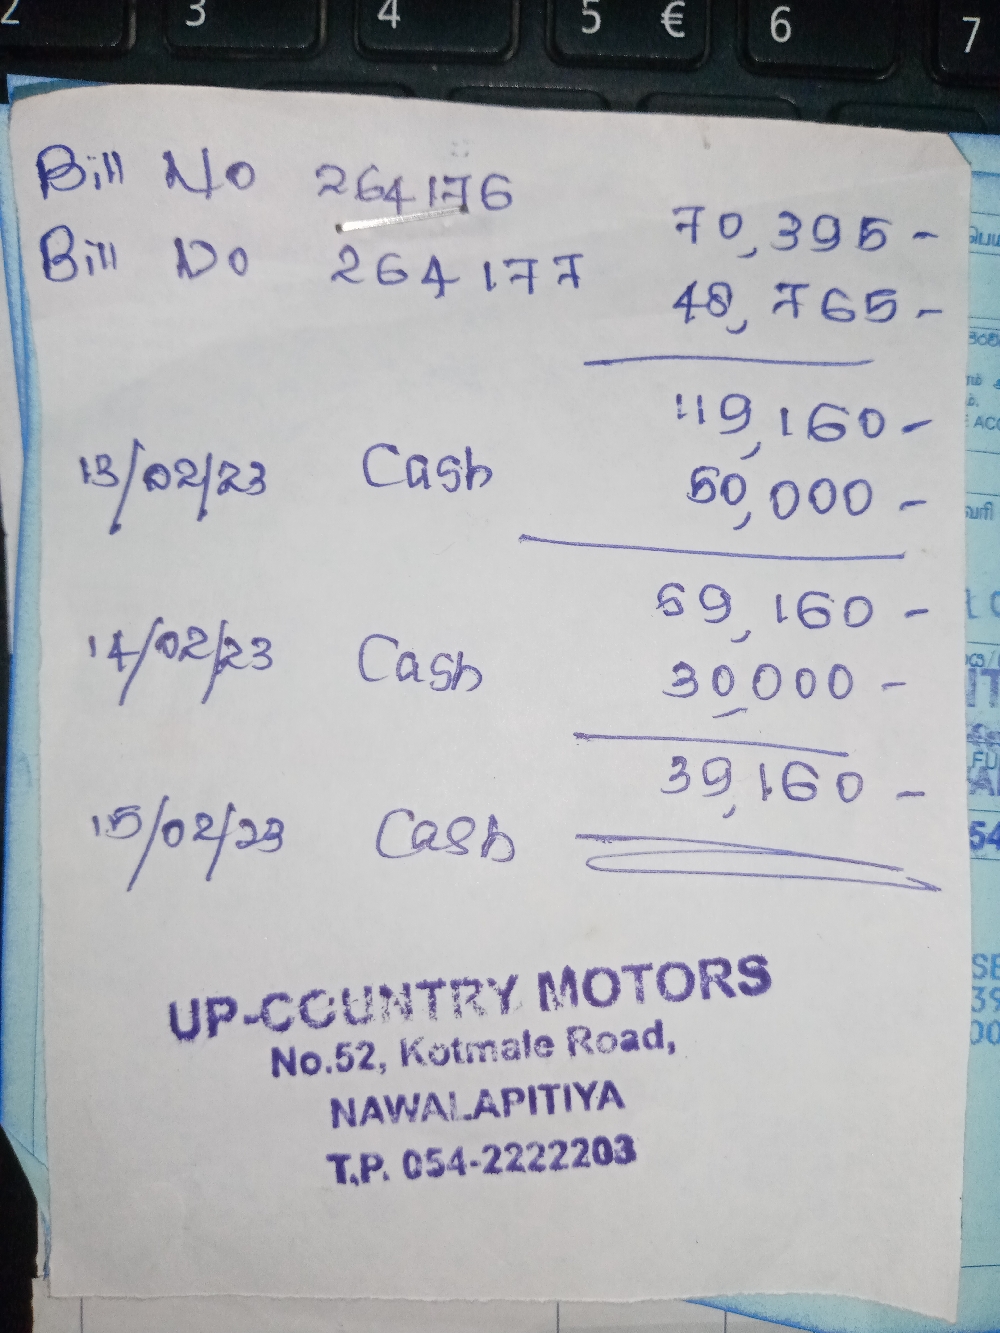 Bill No 264176 70,395 -
Bill No 264177 48,765 -
119,160 -
13/02/23 Cash 50,000 -
69,160 -
14/02/23 Cash 30,000 -
39,160 -
15/02/23 Cash
UP-COUNTRY MOTORS
No.52, Kotmale Road,
NAWALAPITIYA
T.P. 054-2222203
2 3 4 5 € 6 7